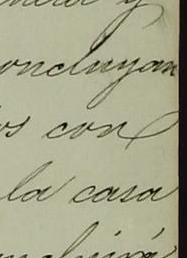 y
oncluyan
os con
la casa